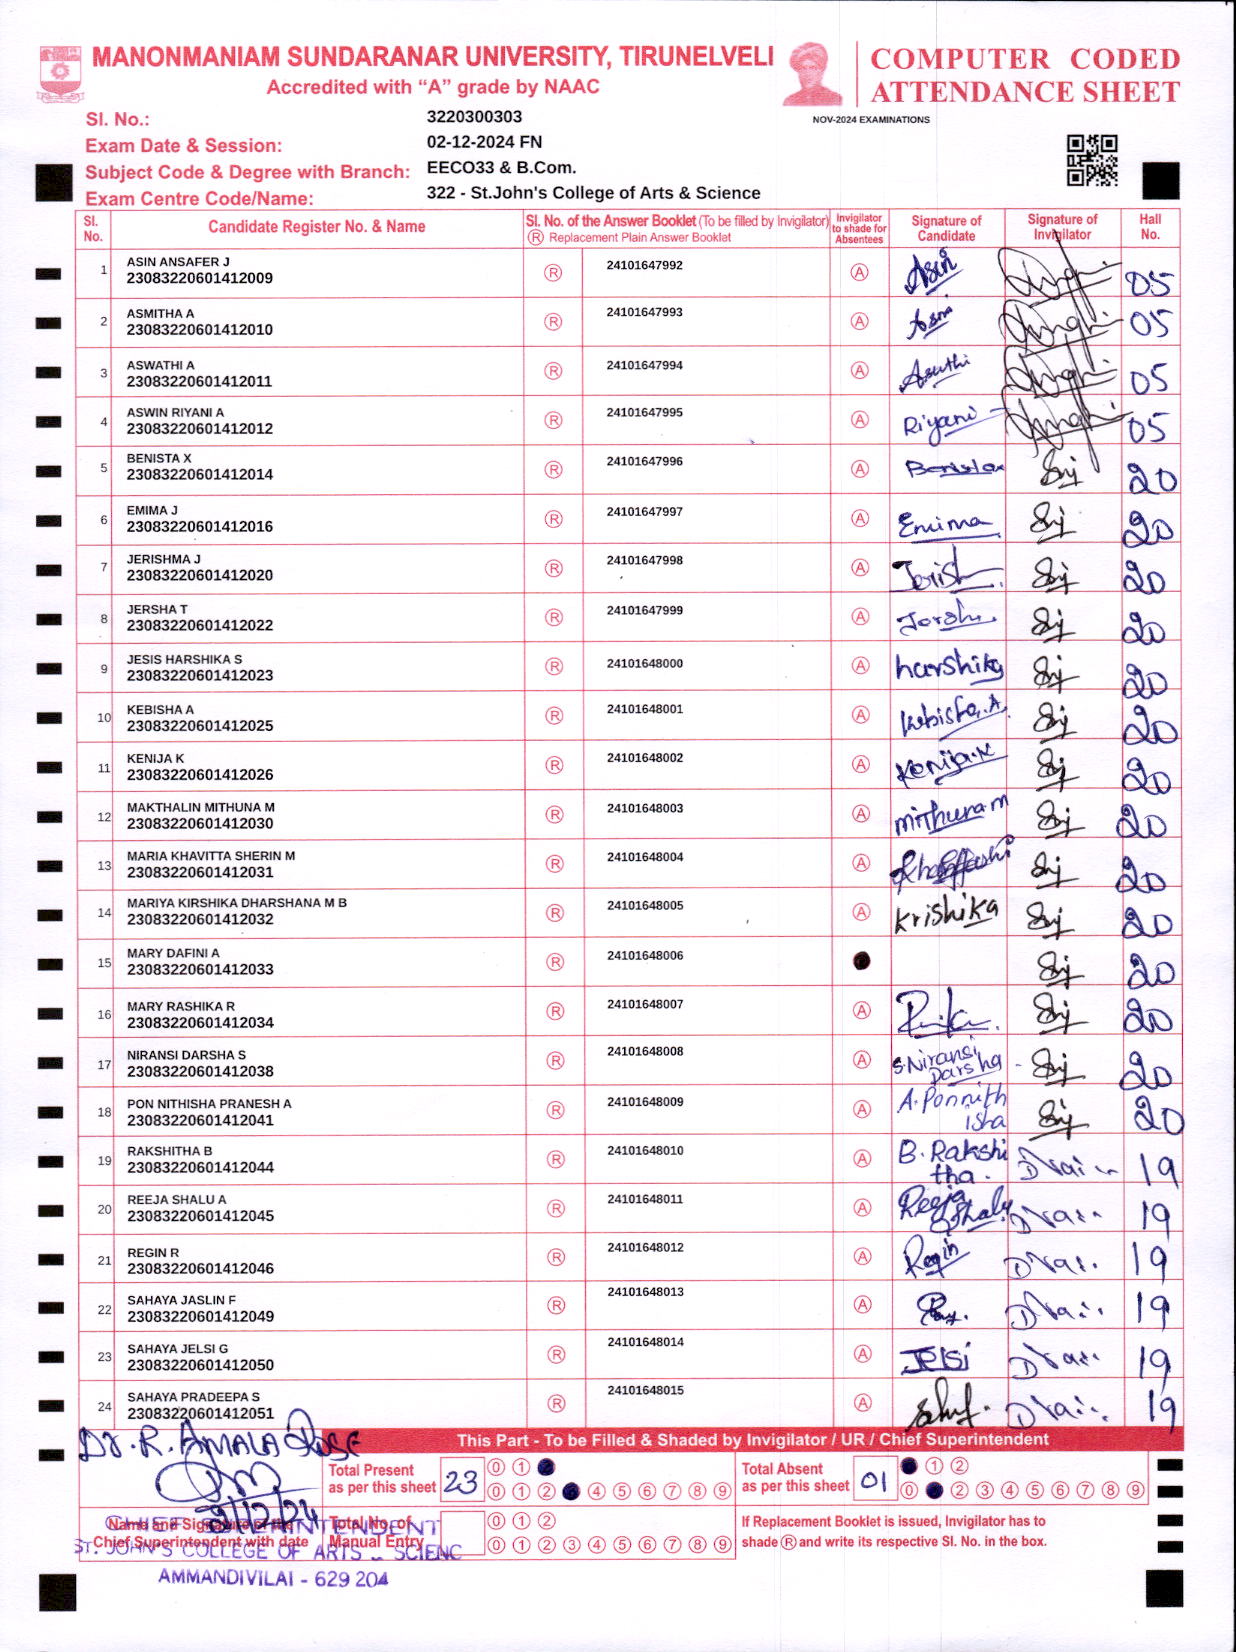 MANONMANIAM SUNDARANAR UNIVERSITY, TIRUNELVELI
Accredited with “A” grade by NAAC
COMPUTER CODED
ATTENDANCE SHEET
NOV-2024 EXAMINATIONS
Sl. No.: 3220300303
Exam Date & Session: 02-12-2024 FN
Subject Code & Degree with Branch: EECO33 & B.Com.
Exam Centre Code/Name: 322 - St.John's College of Arts & Science
Sl. No. Candidate Register No. & Name Sl. No. of the Answer Booklet (To be filled by Invigilator) Ⓡ Replacement Plain Answer Booklet Invigilator to shade for Absentees Signature of Candidate Signature of Invigilator Hall No.
1 ASIN ANSAFER J 23083220601412009 Ⓡ 24101647992 Ⓐ Asin 05
2 ASMITHA A 23083220601412010 Ⓡ 24101647993 Ⓐ 05
3 ASWATHI A 23083220601412011 Ⓡ 24101647994 Ⓐ 05
4 ASWIN RIYANI A 23083220601412012 Ⓡ 24101647995 Ⓐ Riyani 05
5 BENISTA X 23083220601412014 Ⓡ 24101647996 Ⓐ 20
6 EMIMA J 23083220601412016 Ⓡ 24101647997 Ⓐ Emima 20
7 JERISHMA J 23083220601412020 Ⓡ 24101647998 Ⓐ 20
8 JERSHA T 23083220601412022 Ⓡ 24101647999 Ⓐ 20
9 JESIS HARSHIKA S 23083220601412023 Ⓡ 24101648000 Ⓐ harshika 20
10 KEBISHA A 23083220601412025 Ⓡ 24101648001 Ⓐ Kebisha.A 20
11 KENIJA K 23083220601412026 Ⓡ 24101648002 Ⓐ Kenija.K 20
12 MAKTHALIN MITHUNA M 23083220601412030 Ⓡ 24101648003 Ⓐ 20
13 MARIA KHAVITTA SHERIN M 23083220601412031 Ⓡ 24101648004 Ⓐ 20
14 MARIYA KIRSHIKA DHARSHANA M B 23083220601412032 Ⓡ 24101648005 Ⓐ Krishika 20
15 MARY DAFINI A 23083220601412033 Ⓡ 24101648006 20
16 MARY RASHIKA R 23083220601412034 Ⓡ 24101648007 Ⓐ 20
17 NIRANSI DARSHA S 23083220601412038 Ⓡ 24101648008 Ⓐ S.Niransi Darsha 20
18 PON NITHISHA PRANESH A 23083220601412041 Ⓡ 24101648009 Ⓐ A.Ponnith isha 20
19 RAKSHITHA B 23083220601412044 Ⓡ 24101648010 Ⓐ B.Rakshi tha. 19
20 REEJA SHALU A 23083220601412045 Ⓡ 24101648011 Ⓐ Reeja Shalu 19
21 REGIN R 23083220601412046 Ⓡ 24101648012 Ⓐ Regin 19
22 SAHAYA JASLIN F 23083220601412049 Ⓡ 24101648013 Ⓐ 19
23 SAHAYA JELSI G 23083220601412050 Ⓡ 24101648014 Ⓐ Jelsi 19
24 SAHAYA PRADEEPA S 23083220601412051 Ⓡ 24101648015 Ⓐ 19
Dr. R. AMALA ROSE
This Part - To be Filled & Shaded by Invigilator / UR / Chief Superintendent
Total Present as per this sheet 23 0 1
0 1 2 4 5 6 7 8 9
Total Absent as per this sheet 01 1 2
0 2 3 4 5 6 7 8 9
2/12/24
Name and Signature of the Chief Superintendent with date
Total No. of Manual Entry 0 1 2
0 1 2 3 4 5 6 7 8 9
If Replacement Booklet is issued, Invigilator has to
shade Ⓡ and write its respective Sl. No. in the box.
CHIEF SUPERINTENDENT
ST. JOHN'S COLLEGE OF ARTS SCIENC
AMMANDIVILAI - 629 204